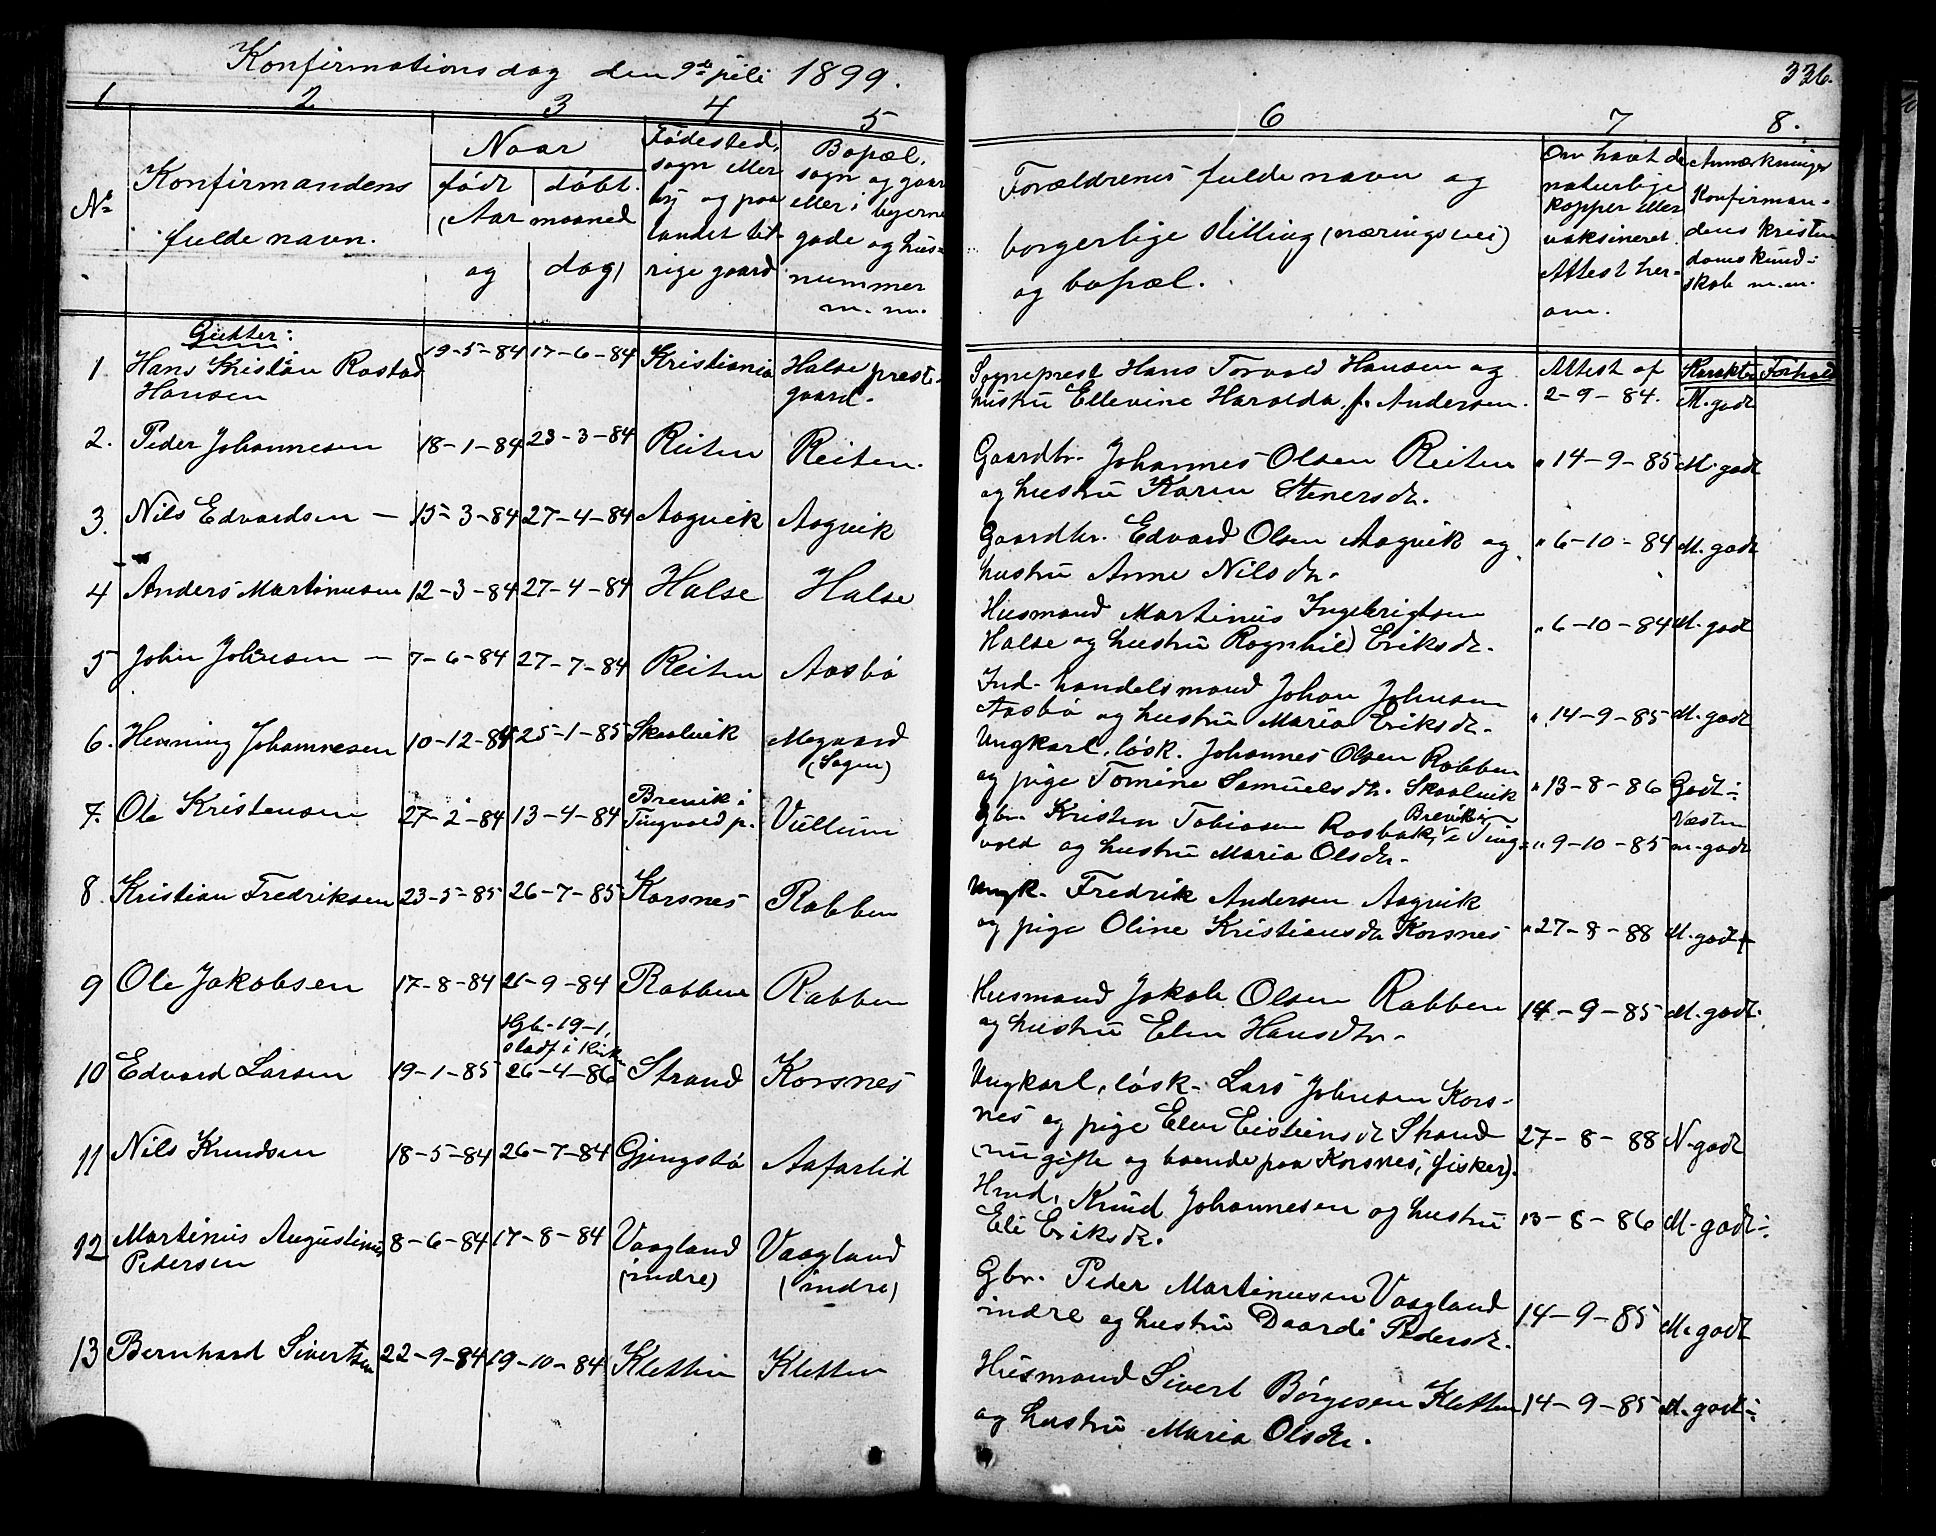 Konfirmationsdag den 9de juli 1899.
336.
1 2 3 4 5
6 7 8.
No
Konfirmandens
fulde navn.
Naar
født | døbt.
(Aar maaned
og dag)
Fødested,
sogn eller
by og paa
landet til-
rige gaard
Bopæl,
sogn og gaard
eller i byerne
gade og hus-
nummer
m. m.
Forældrenes fulde navn og
borgerlige stilling (næringsvei)
og bopæl.
Om havt de
naturlige
kopper eller
vaksineret.
Attest her-
om.
Anmærkninger
Konfirman-
dens kristen
domskund-
skab m.m.
Gutter:
Karakter Forhold
1 Hans Kristian Rastad 19-5-84 17-6-84 Kristiania Halse preste-
Hansen gaard.
Sogneprest Hans Torvald Hansen og Attest af
hustru Ellevine Haralda f. Andersen. 2-9-84. M. godt
2. Peder Johannesen 18-1-84 23-3-84 Reiten Reiten.
Gaardbr. Johannes Olsen Reiten " 14-9-85 M. godt
og hustru Karen Stenersdr.
3. Nils Edvardsen — 15-3-84 27-4-84 Aagvik Aagvik
Gaardbr. Edvard Olsen Aagvik og " 6-10-84 M. godt
hustru Anne Nilsdr.
4 Anders Martinusen 12-3-84 27-4-84 Halse Halse
Husmand Martinus Ingebrigtsen
Halse og hustru Ragnhild Eriksdr. " 6-10-84 M. godt
5 John Johnsen — 7-6-84 27-7-84 Reiten Aasbø
Ind-handelsmand Johan Johnsen
Aasbø og hustru Maria Eriksdr. " 14-9-85 M. godt
6. Henning Johannesen 10-12-84 25-1-85 Skaalvik Megaard
(Sagen)
Ungkarl, løsk. Johannes Olsen Rabben
og pige Tomine Samuelsdr. Skaalvik " 13-8-86 Godt
7. Ole Kristensen 27-2-84 13-4-84 Brevik i
Tingvold p. Vullum
Gbr. Kristen Tobiasen Rasbak, Brevik i Ting- Næsten
vold og hustru Maria Olsdr. " 9-10-85 m. godt
8. Kristian Fredriksen 23-5-85 26-7-85 Korsnes Rabben
Ungk. Fredrik Andersen Aagvik
og pige Oline Kristiansdr Korsnes " 27-8-88 M. godt
9 Ole Jakobsen 17-8-84 21-9-84 Rabben Rabben
Husmand Jakob Olsen Rabben 14-9-85 M. godt.
og hustru Elen Hansdtr.
Hjb-19-1,
stadf i Kirk
10 Edvard Larsen 19-1-85 26-4-86 Strand Korsnes
Ungkarl, løsk. Lars Johnsen Kors-
nes og pige Elen Eistensdr Strand 27-8-88 N. godt
(nu gifte og boende paa Korsnes, fisker).
11 Nils Knudsen 18-5-84 26-7-84 Gjengstø Aafarlid
Hmd. Knud Johannesen og hustru 13-8-86 M. godt
Eli Eriksdr.
12 Martinus Augustinus 8-6-84 17-8-84 Vaagland Vaagland
Pedersen (indre) (indre)
Gbr. Peder Martinusen Vaagland
indre og hustru Daardi Pedersdr. 14-9-85 M. godt
13 Bernhard Sivertsen 22-9-84 19-10-84 Kletten Kletten
Husmand Sivert Børgesen Kletten 14-9-85 M. godt
og hustru Maria Olsdr.